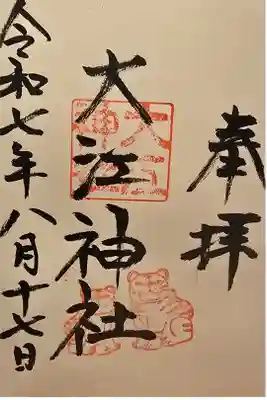 奉拝
大江神社
令和七年八月十七日